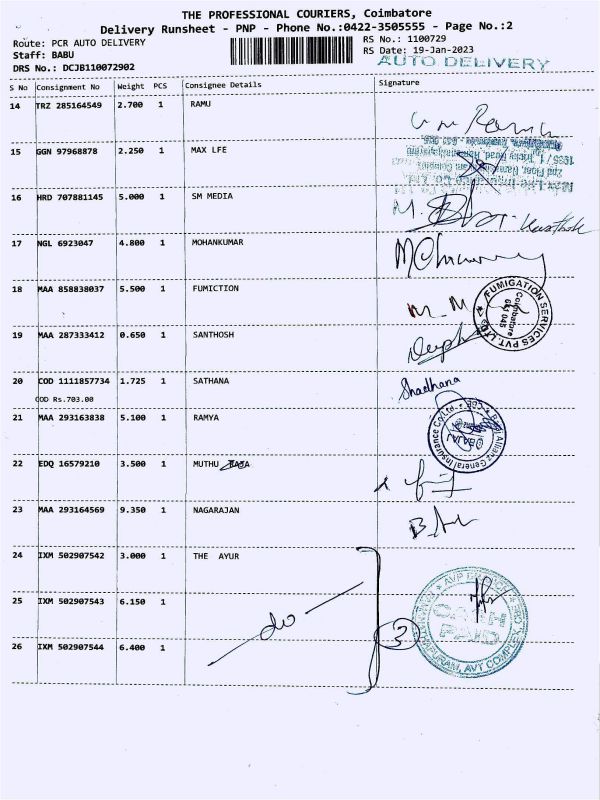 THE PROFESSIONAL COURIERS, Coimbatore
Delivery Runsheet - PNP - Phone No.:0422-3505555 - Page No.:2
Route: PCR AUTO DELIVERY
Staff: BABU
DRS No.: DCJB110072902
RS No.: 1100729
RS Date: 19-Jan-2023
AUTO DELIVERY
S No Consignment No Weight PCS Consignee Details Signature
14 TRZ 285164549 2.700 1 RAMU
15 GGN 97968878 2.250 1 MAX LFE
16 HRD 707881145 5.000 1 SM MEDIA
17 NGL 6923047 4.800 1 MOHANKUMAR
18 MAA 858838037 5.500 1 FUMICTION
FUMIGATION SERVICES PVT. LTD
Coimbatore
641 045
19 MAA 287333412 0.650 1 SANTHOSH
20 COD 1111857734 1.725 1 SATHANA
Shadhana
COD Rs.703.00
21 MAA 293163838 5.100 1 RAMYA
Bajaj Allianz General Insurance Co. Ltd.
CBE
BAJAJ
22 EDQ 16579210 3.500 1 MUTHU
23 MAA 293164569 9.350 1 NAGARAJAN
24 IXM 502907542 3.000 1 THE AYUR
25 IXM 502907543 6.150 1
do
26 IXM 502907544 6.400 1
3
CASH
PAID
RAMANATHAPURAM, AVT COMPLEX, CBE